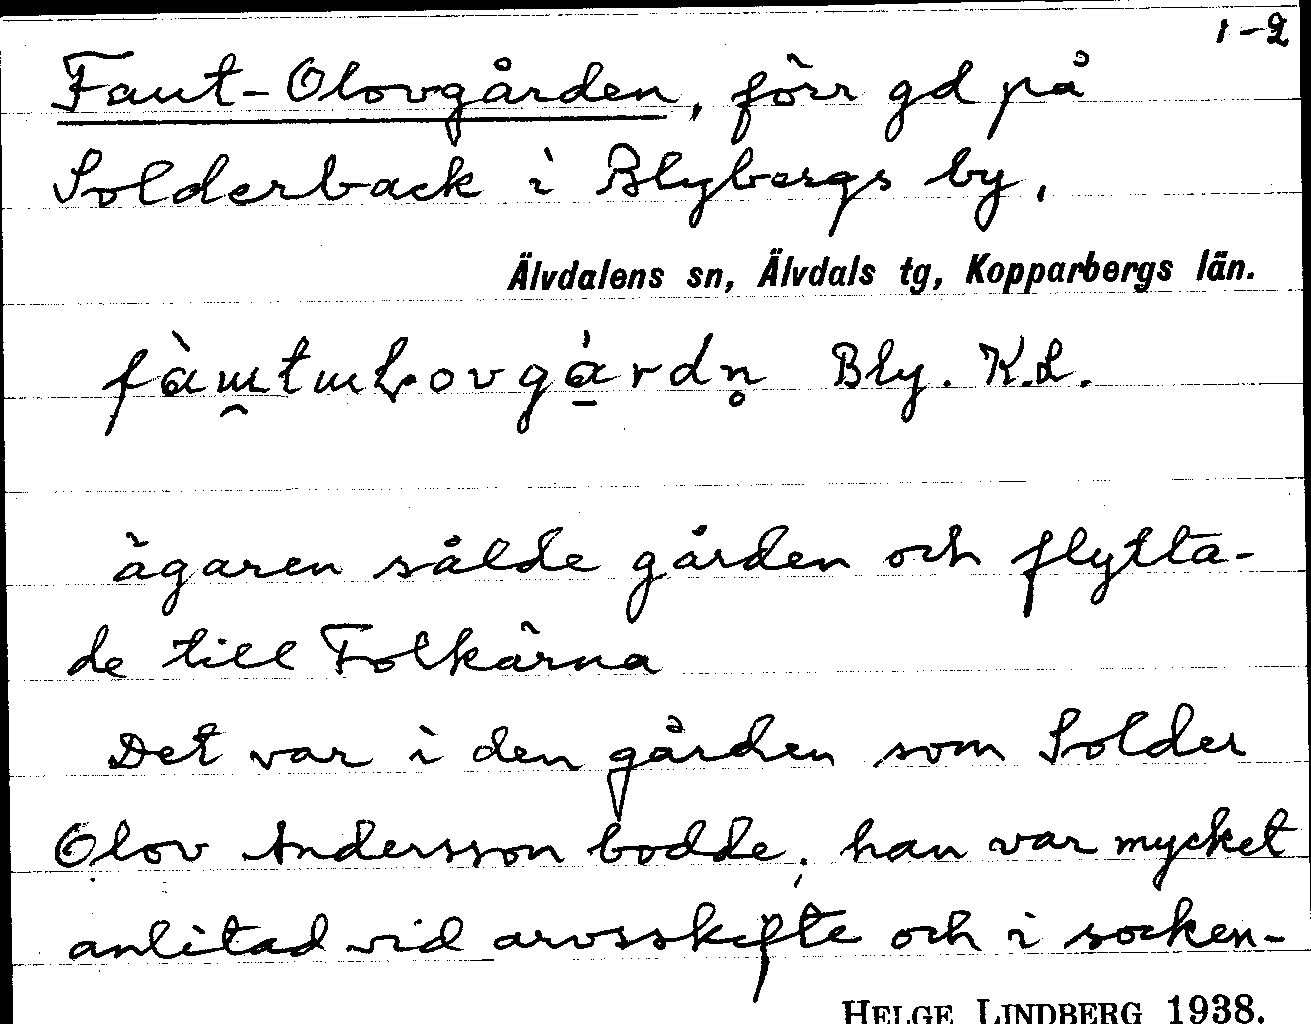 1-2
Faut-Olovgården, förr gd på
Solderback i Blybergs by.
Älvdalens sn, Älvdals tg, Kopparbergs län.
Bly. K.L.
ägaren sålde gården och flytta-
de till Folkärna
Det var i den gården som Solder
Olov Andersson bodde; han var mycket
anlitad vid arvsskifte och i socken-
HELGE LINDBERG 1938.